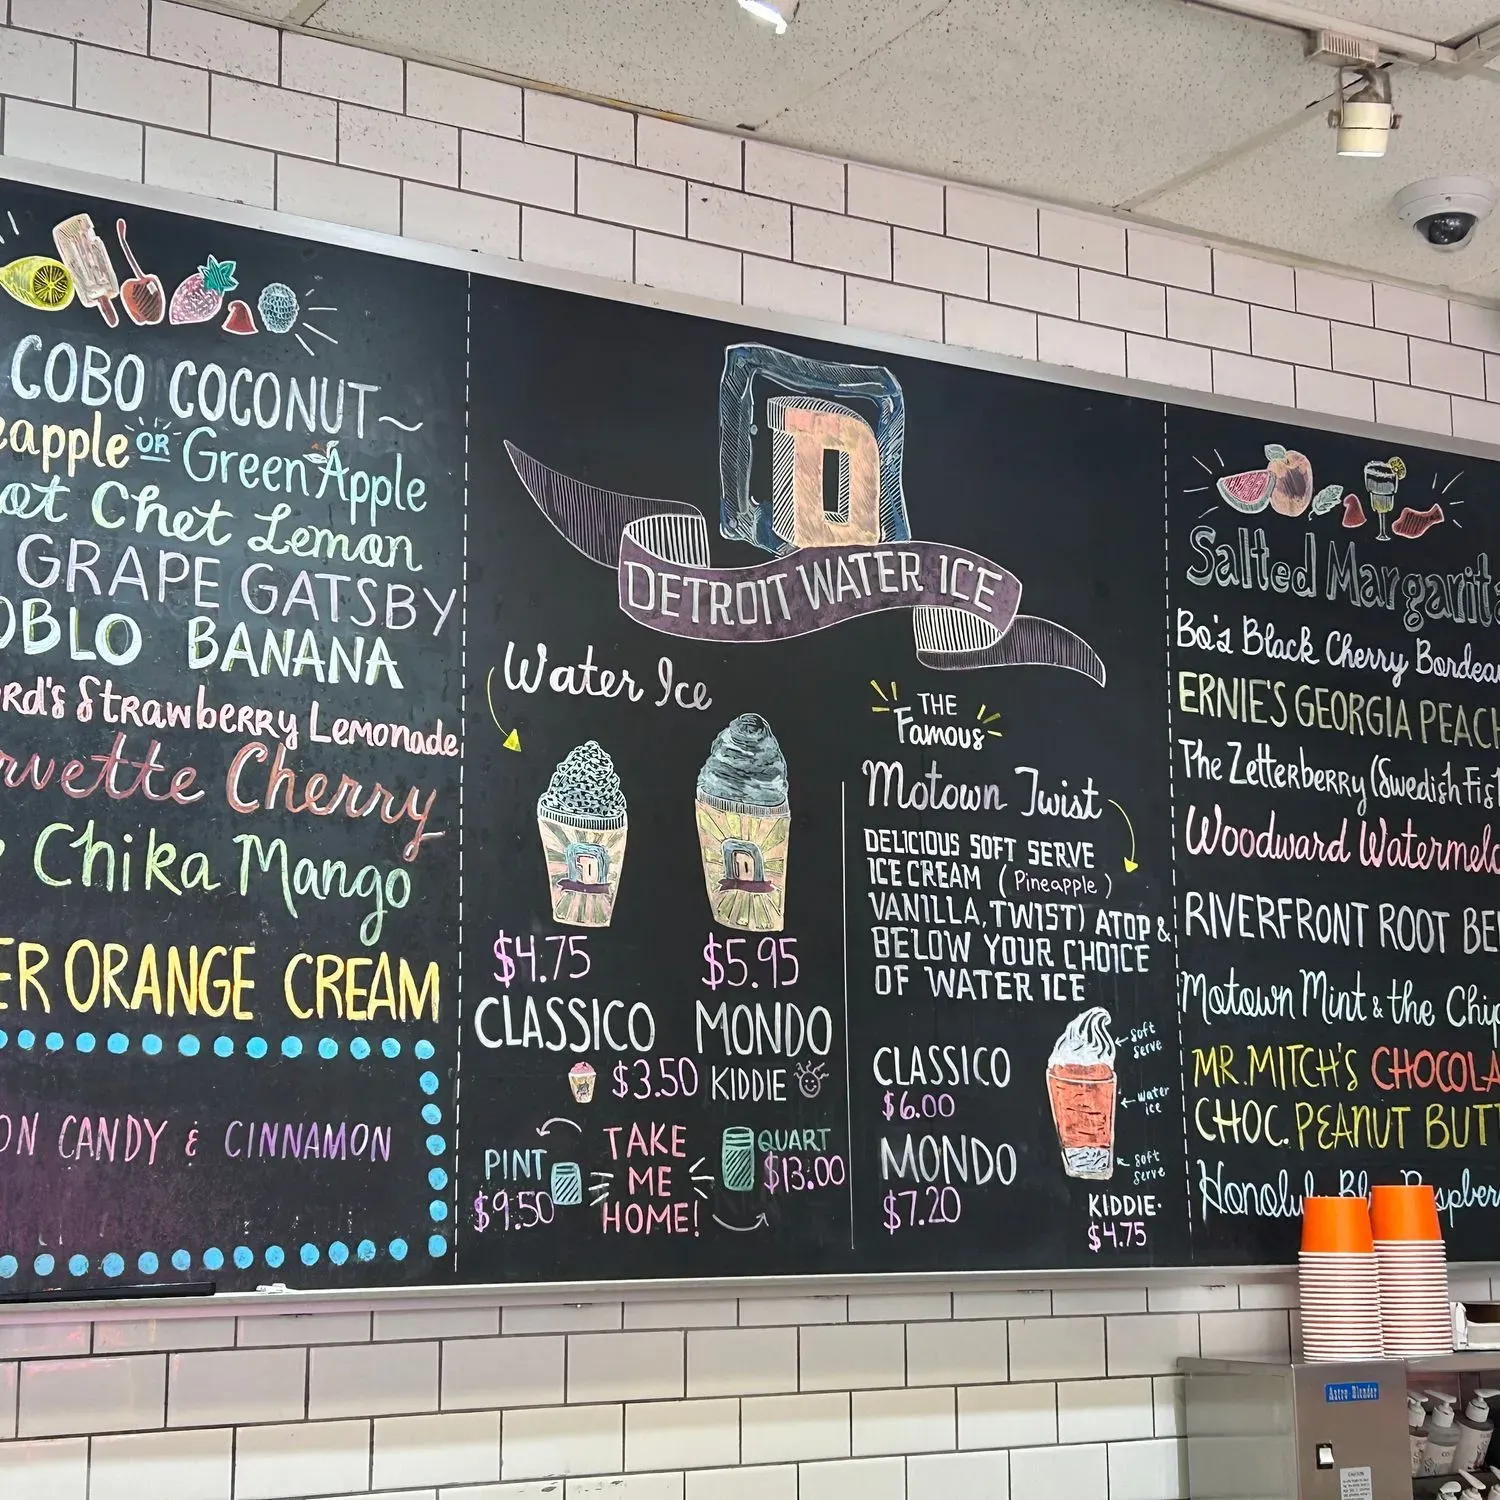 COBO COCONUT~
eapple OR Green Apple
ot Chet Lemon
GRAPE GATSBY
OBLO BANANA
rd's Strawberry Lemonade
rvette Cherry
Chika Mango
ER ORANGE CREAM
ON CANDY & CINNAMON
D
DETROIT WATER ICE
Water Ice
D
D
$4.75
$5.95
CLASSICO
MONDO
$3.50 KIDDIE
PINT
$9.50
TAKE
ME
HOME!
QUART
$13.00
THE
Famous
Motown Twist
DELICIOUS SOFT SERVE
ICE CREAM (Pineapple)
VANILLA, TWIST) ATOP &
BELOW YOUR CHOICE
OF WATER ICE
CLASSICO
$6.00
MONDO
$7.20
soft
serve
water
ice
soft
serve
KIDDIE·
$4.75
Salted Margarita
Bo's Black Cherry Bordea
ERNIE'S GEORGIA PEACH
The Zetterberry (Swedish Fis
Woodward Watermelo
RIVERFRONT ROOT BE
Motown Mint & the Chip
MR. MITCH'S CHOCOLA
CHOC. PEANUT BUTT
Honolulu Blu Raspber
Astro Blender
CAUTION